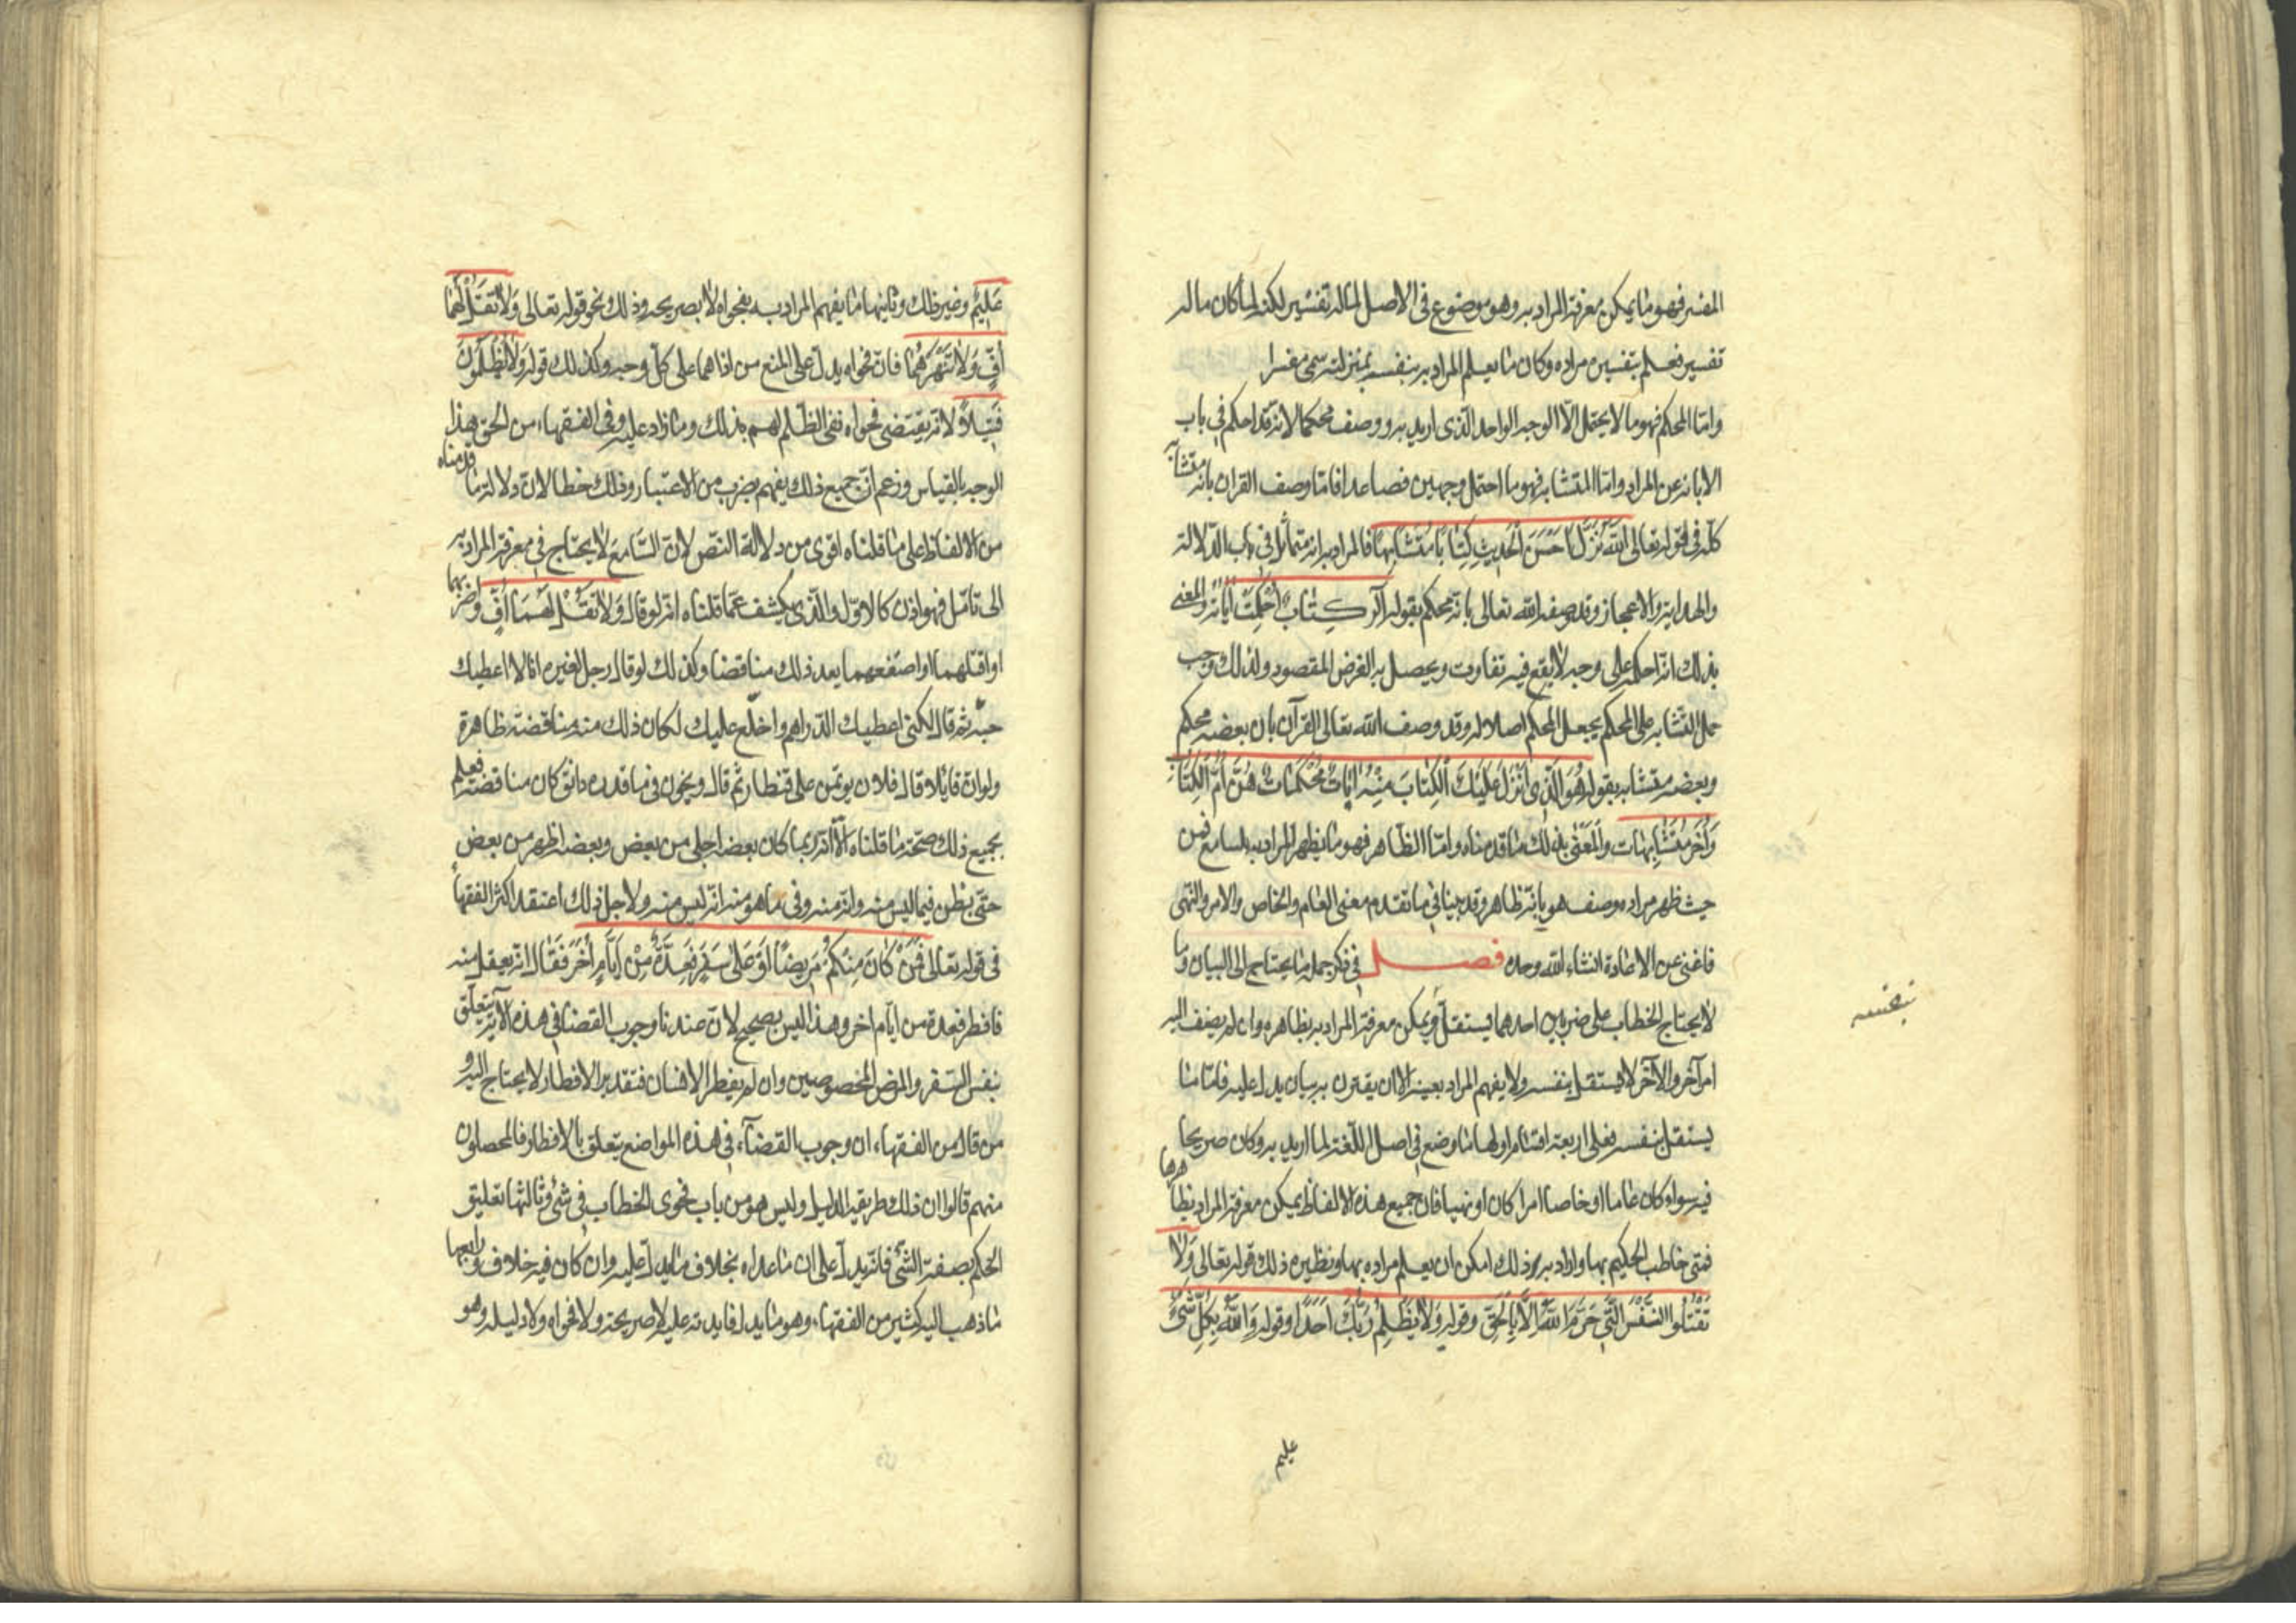 المفسر فهو ما يمكن معرفة المراد به وهو موضوع في الاصل لماله تفسير لكنه لما كان ماله
تفسير فعلم بتفسيره مراده وكان ما يعلم المراد به بنفسه بمنزلته سمى مفسرا
واما المحكم فهو ما لا يحتمل الا الوجه الواحد الذى اريد به ووصف محكما لانه قد احكم في باب
الابانة عن المراد واما المتشابه فهو ما احتمل وجهين فصاعدا فاما وصف القران بانه متشابه
كله في قوله تعالى اَللّٰهُ نَزَّلَ اَحْسَنَ الْحَدِيثِ كِتَابًا مُتَشَابِهًا فالمراد به انه متماثل في باب الدلالة
والهداية والاعجاز وقد وصفه الله تعالى بانه محكم بقوله الر كِتَابٌ اُحْكِمَتْ اٰيَاتُهُ والمعنى
بذلك انه احكمه على وجه لا يقع فيه تفاوت ويحصل به الغرض المقصود ولذلك وجب
حمل المتشابه على المحكم يجعل المحكم اصلا له وقد وصف الله تعالى القرآن بان بعضه محكم
وبعضه متشابه بقوله هُوَ الَّذِى اَنْزَلَ عَلَيْكَ الْكِتَابَ مِنْهُ اٰيَاتٌ مُحْكَمَاتٌ هُنَّ اُمُّ الْكِتَابِ
وَاُخَرُ مُتَشَابِهَات والمَعْنى بذلك ما قدمناه واما الظاهر فهو ما يظهر المراد به للسامع فمن
حيث ظهر مراده وصف هو بانه ظاهر وقد بينا في ما تقدم معنى العام والخاص والامر والنهى
فاغنى عن الاعادة انشاء الله وحده فصل في ذكر جمل ما يحتاج الى البيان وما
لا يحتاج الخطاب على ضربين احدهما يستقل ويمكن معرفة المراد به بظاهره وان لم يضف اليه
امر آخر والآخر لا يستقل بنفسه ولا يفهم المراد بعينه الا ان يقترن به بيان يدل عليه فاما ما
يستقل بنفسه فعلى اربعة اقسام اولها ما وضع في اصل اللغة لما اريد به وكان صريحا
فيه سواء كان عاما او خاصا امرا كان او نهيا فان جميع هذه الالفاظ يمكن معرفة المراد بظاهرها
فمتى خاطب الحكيم بها واراد به ذلك امكن ان يعلم مراده بها ونظيره ذلك قوله تعالى وَلَا
تَقْتُلُوا النَّفْسَ الَّتِى حَرَّمَ اللّٰهُ اِلَّا بِالْحَقِّ وقوله وَلَا يَظْلِمُ رَبُّكَ اَحَدًا وقوله وَاللّٰهُ بِكُلِّ شَىْءٍ
عليم
عَلِيمٌ وغير ذلك وثانيها ما يفهم المراد به بفحواه لا بصريحه وذلك نحو قوله تعالى وَلَا تَقُلْ لَهُمَا
اُفٍّ وَلَا تَنْهَرْهُمَا فان فحواه يدل على المنع من اذاهما على كل وجه وكذلك قوله وَلَا يُظْلَمُونَ
فَتِيلًا لانه يقتضى فحواه نفى الظلم لهم بذلك وما زاد عليه وفي الفقهاء من الحق هذا
الوجه بالقياس وزعم ان جميع ذلك يفهم بضرب من الاعتبار وذلك خطا لان دلالة ما قدمناه
من الالفاظ على ما قلناه اقوى من دلالة النص لان السامع لا يحتاج في معرفة المراد به
الى تامل فهو اذن كالاول والذى يكشف عما قلناه انه لو قال وَلَا تَقُلْ لَهُمَا اُفٍّ واضربهما
او اقتلهما او اصفعهما يعد ذلك مناقضا وكذلك لو قال رجل لغيره انا لا اعطيك
حبة ثم قال لكنى اعطيك الدراهم واخلع عليك لكان ذلك منه مناقضة ظاهرة
ولو ان قائلا قال فلان يوتمن على قنطار ثم قال ويخون في ما قدره دانق كان مناقضة فعلم
بجميع ذلك صحة ما قلناه الا انه ربما كان بعضه اجلى من بعض وبعضه اظهر من بعض
حتى يظن فيما ليس منه وانه منه وفي ما هو منه انه ليس منه ولاجل ذلك اعتقد اكثر الفقهاء
في قوله تعالى فَمَنْ كَانَ مِنْكُمْ مَرِيضًا اَوْ عَلٰى سَفَرٍ فَعِدَّةٌ مِنْ اَيَّامٍ اُخَرَ فَقَال انه يعقل منه
فافطر فعدة من ايام اخر وهذا ليس بصحيح لان عندنا وجوب القضا في هذه الآية يتعلق
بنفس السفر والمرض المخصوصين وان لم يفطر الانسان فتقدير الافطار لا يحتاج اليه و
من قال من الفقهاء ان وجوب القضآء في هذه المواضع يتعلق بالافطار فالمحصلون
منهم قالوا ان ذلك طريقه الدليل وليس هو من باب فحوى الخطاب في شئ وثالثها تعليق
الحكم بصفة الشئ فانه يدل على ان ما عداه بخلاف ما يدل عليه وان كان فيه خلاف ورابعها
ما ذهب اليه كثير من الفقهاء وهو ما يدل فايدته عليه لا صريحه ولا فحواه ولا دليله وهو